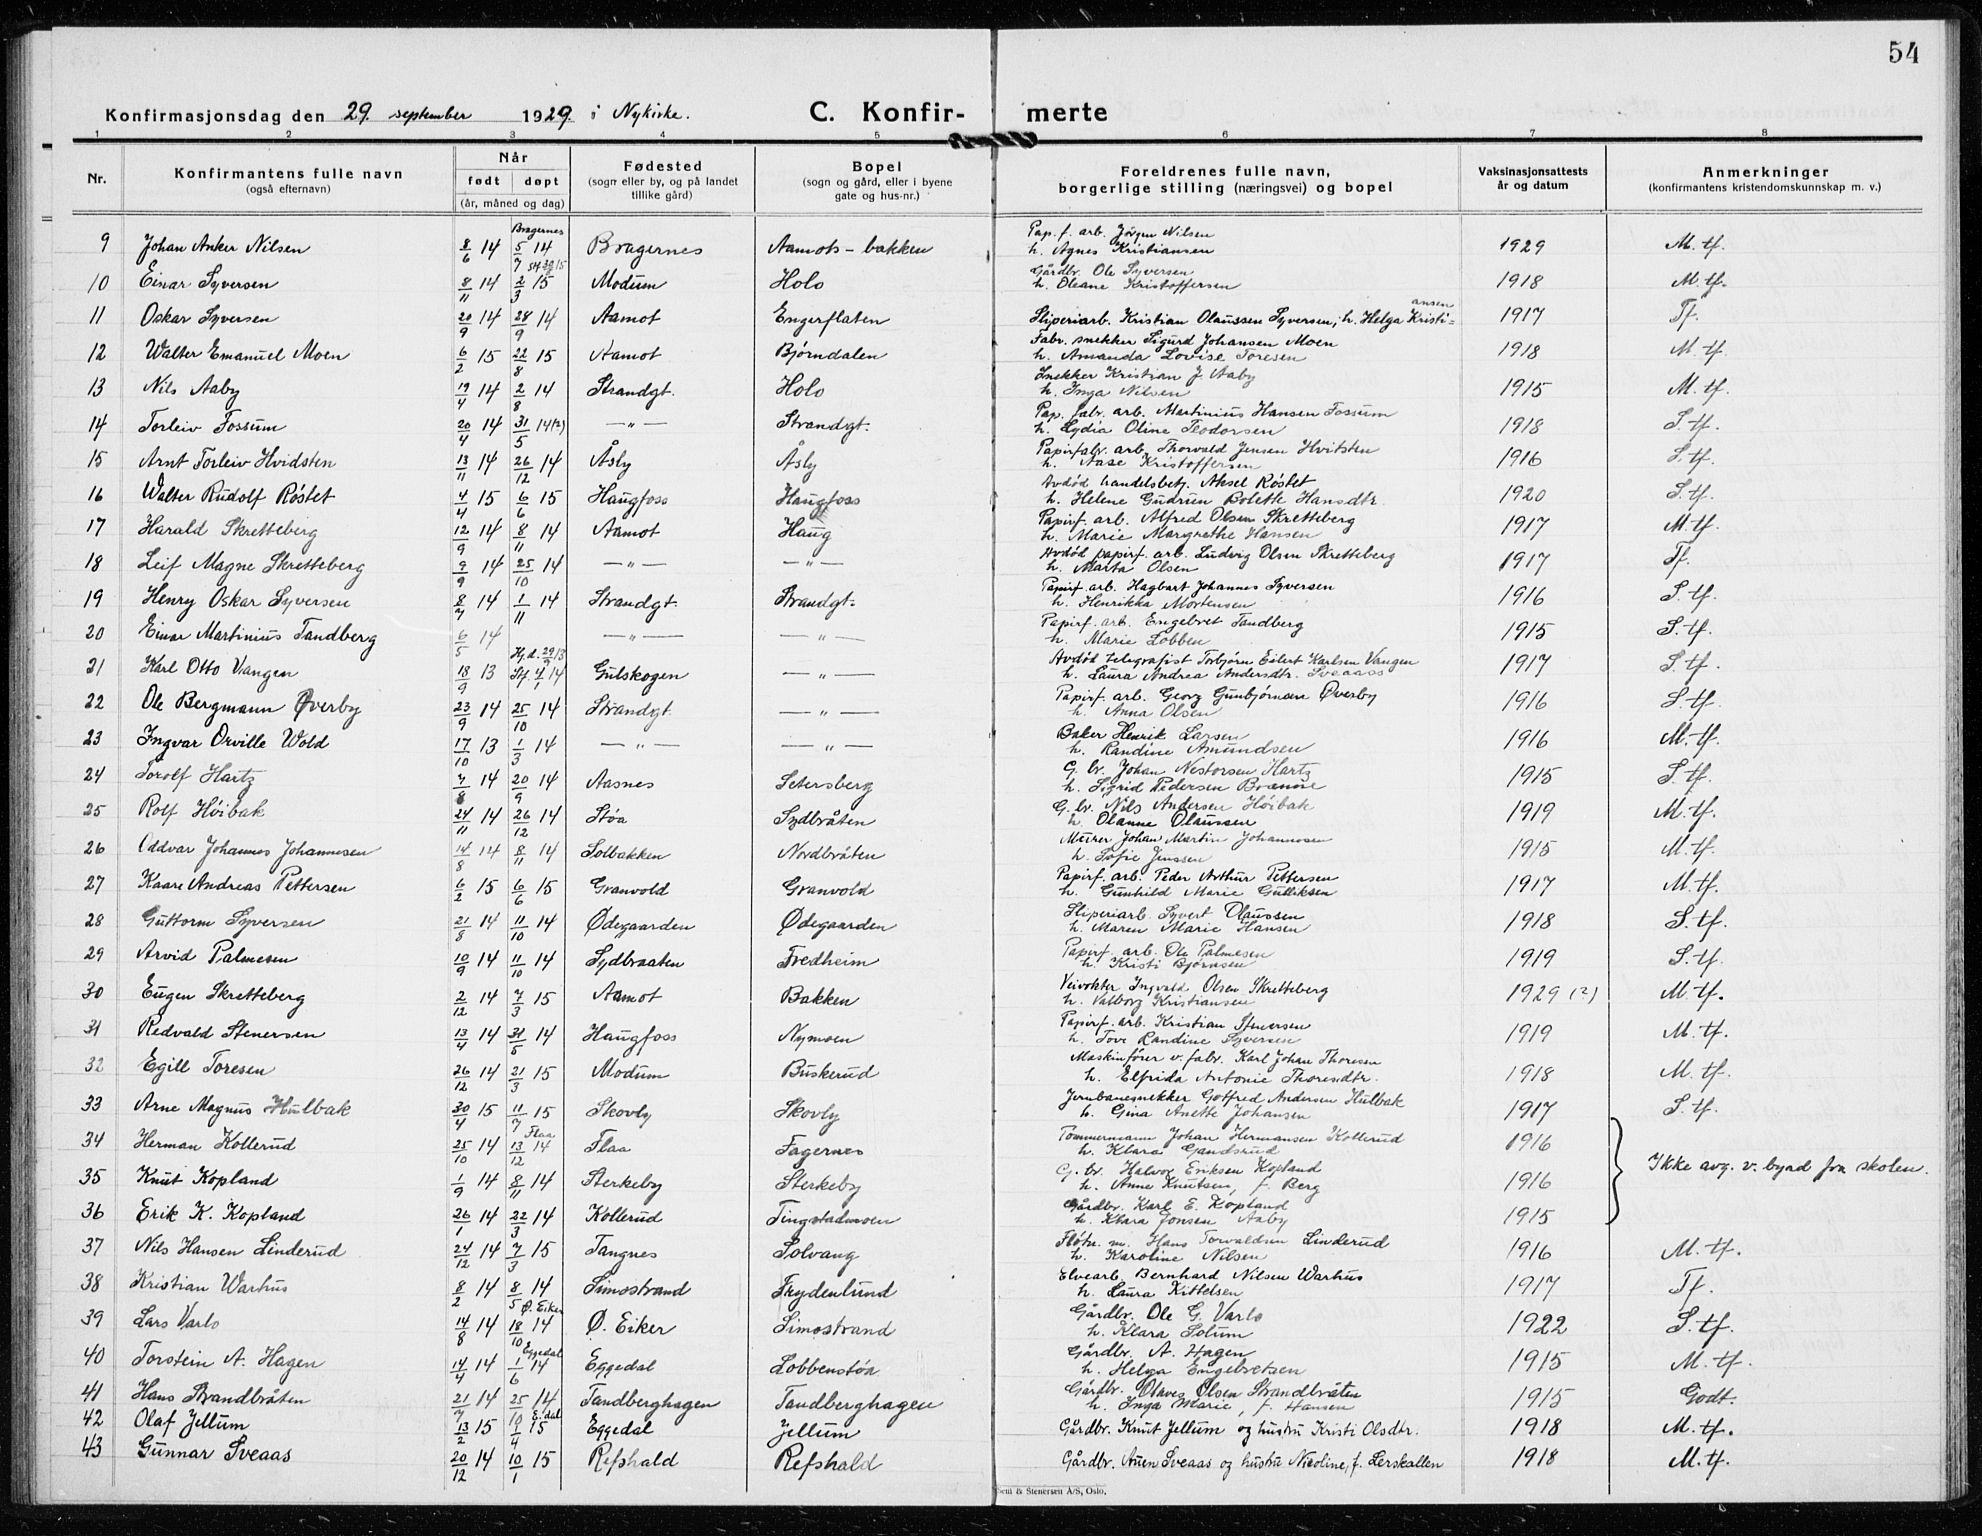 54
Konfirmasjonsdag den 29. september 1929. i Nykirke. C. Konfir- merte
1 2 3 4 5 6 7 8
Nr. Konfirmantens fulle navn (også efternavn) Når født døpt (år, måned og dag) Fødested (sogn eller by, og på landet tillike gård) Bopel (sogn og gård, eller i byene gate og hus-nr.) Foreldrenes fulle navn, borgerlige stilling (næringsvei) og bopel Vaksinasjonsattests år og datum Anmerkninger (konfirmantens kristendomskunnskap m. v.)
9 Johan Anker Nilsen 8/6 14 Bragernes 5/7 14 Bragernes Aamots-bakken Pap. f. arb. Jörgen Nilsen h. Agnes Kristiansen 1929 M. tf.
10 Einar Syversen 8/11 14 2/3 15 Modum Holo Gårdbr. Ole Syversen h. Oleane Kristoffersen 1918 M. tf.
11 Oskar Syversen 20/9 14 28/9 14 Aamot Engerflaten Sliperiarb. Kristian Olaussen Syversen, h. Helga Kristi=ansen 1917 Tf.
12 Walter Emanuel Moen 6/2 15 22/8 15 Aamot Bjørndalen Fabr. snekker Sigurd Johansen Moen h. Amanda Lovise Toresen 1918 M. tf.
13 Nils Aaby 19/4 14 2/8 14 Strandgt. Holo Snekker Kristian J. Aaby h. Inga Nilsen 1915 M. tf.
14 Torleiv Fossum 20/4 14 31/5 14(?) —"— Strandgt. Pap. fabr. arb. Martinius Hansen Fossum h. Lydia Oline Teodorsen 1918 S. tf.
15 Arnt Torleiv Hvidsten 13/11 14 26/12 14 Åsly Åsly Papirfabr. arb. Thorvald Jensen Hvitsten h. Aase Kristoffersen 1916 S. tf.
16 Walter Rudolf Røstet 4/4 15 6/6 15 Haugfoss Haugfoss Avdød handelsbetj. Aksel Røstet h. Helene Gudrun Bolette Hansdtr. 1920 S. tf.
17 Harald Skretteberg 12/9 14 8/11 14 Aamot Haug Papirf. arb. Alfred Olsen Skretteberg h. Marie Margrethe Hansen 1917 M. tf.
18 Leif Magne Skretteberg 9/9 14 25/10 14 —"— —"— Avdød papirf. arb. Ludvig Olsen Skretteberg h. Marta Olsen 1917 Tf.
19 Henry Oskar Syversen 8/7 14 1/11 14 Strandgt. Strandgt. Papirf. arb. Hagbart Johannes Syversen h. Henrikka Mortensen 1916 S. tf.
20 Einar Martinius Tandberg 6/5 14 —"— —"— Papirf. arb. Engebret Tandberg h. Marie Lobben 1915 S. tf.
21 Karl Otto Vangen 18/9 13 Hj.d. 29/9 13 St. f. 4/1 14 Gulskogen —"— Avdød telegrafist Torbjørn Eilert Karlsen Vangen h. Laura Andrea Andersdtr. Sveaass 1917 S. tf.
22 Ole Bergmann Øverby 23/9 14 25/10 14 Strandgt. —"— Papirf. arb. Georg Gunbjørnsen Øverby h. Anna Olsen 1916 S. tf.
23 Ingvar Orville Wold 17/10 13 1/3 14 —"— —"— Baker Henrik Larsen h. Randine Amundsen 1916 M. tf.
24 Torolf Hartz 7/8 14 20/9 14 Aasnes Setersberg G. br. Johan Nestorsen Hartz h. Sigrid Pedersen Brænne 1915 S. tf.
25 Rolf Høibak 24/11 14 26/12 14 Støa Sydbråten G. br. Nils Andersen Høibak h. Olanne Olaussen 1919 M. tf.
26 Oddvar Johannes Johannesen 14/8 14 8/11 14 Solbakken Nordbråten Murer Johan Martin Johannesen h. Sofie Jenssen 1915 M. tf.
27 Kaare Andreas Pettersen 6/2 15 6/6 15 Granvold Granvold Papirf. arb. Peder Arthur Pettersen h. Gunhild Marie Gulliksen 1917 M. tf.
28 Guttorm Syversen 21/8 14 11/10 14 Ødegaarden Ødegaarden Sliperiarb. Syvert Olaussen h. Maren Marie Hansen 1918 S. tf.
29 Arvid Palmesen 10/9 14 11/10 14 Sydbraaten Fredheim Papirf. arb. Ole Palmesen h. Kristi Bjørnsen 1919 S. tf.
30 Eugen Skretteberg 2/12 14 7/3 15 Aamot Bakken Veivokter Ingvald Olsen Skretteberg h. Valborg Kristiansen 1929 (?) M. tf.
31 Redvald Stenersen 13/4 14 31/5 14 Haugfoss Nymoen Papirf. arb. Kristian Stenersen h. Tove Randine Syversen 1919 M. tf.
32 Egill Toresen 26/12 14 21/3 15 Modum Buskerud Maskinfører v. fabr. Karl Johan Thoresen h. Elfrida Antonie Thoresdtr. 1918 M. tf.
33 Arne Magnus Hulbak 30/4 15 11/7 15 Skovly Skovly Jernbanesnekker Gotfred Andersen Hulbak h. Gina Anette Johansen 1917 S. tf.
34 Herman Kollerud 25/10 14 Flaa 13/12 14 Flaa Fagernes Tømmermann Johan Hermansen Kollerud h. Klara Gandsrud 1916 Ikke avg. v. byrd fra skolen.
35 Knut Kopland 1/9 14 8/11 14 Sterkeby Sterkeby G. br. Halvor Eriksen Kopland h. Anne Knutsen, f. Berg 1916
36 Erik K. Kopland 26/1 14 22/3 14 Kollerud Tingstadmoen Gårdbr. Karl E. Kopland h. Klara Jonsen Aaby 1915
37 Nils Hansen Linderud 24/12 14 7/3 15 Tangnes Solvang Fløtn. m. Hans Torvaldsen Linderud h. Karoline Nilsen 1916 M. tf.
38 Kristian Warhus 8/2 14 8/5 14 Simostrand Frydenlund Elvearb. Bernhard Nilsen Warhus h. Laura Kittelsen 1917 Tf.
39 Lars Varlo 14/8 14 Ø. Eiker 18/10 14 Ø. Eiker Simostrand Gårdbr. Ole G. Varlo h. Klara Solum 1922 S. tf.
40 Torstein A. Hagen 14/4 14 Eggedal 1/6 14 Eggedal Lobbenstøa Gårdbr. A. Hagen h. Helga Engebretsen 1915 M. tf.
41 Hans Strandbråten 21/7 14 25/10 14 Tandberghagen Tandberghagen Gårdbr. Olaves Olsen Strandbråten h. Inga Marie, f. Hansen 1915 Godt.
42 Olaf Jellum 13/2 15 E.dal 1/4 15 Eggedal Jellum Gårdbr. Knut Jellum og hustru Kristi Olsdtr. 1918 M. tf.
43 Gunnar Sveaas 20/12 14 10/1 15 Refshald Refshald Gårdbr. Auen Sveaas og hustru Nicoline, f. Lerskallen 1918 M. tf.
Sem & Stenersen A/S, Oslo.